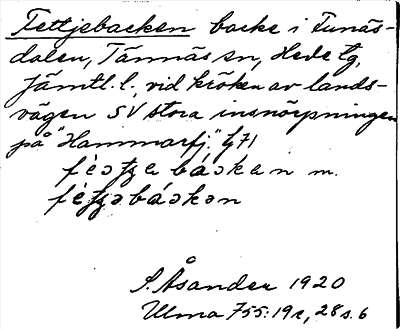 Fettjebacken backe i Funäs-
dalen, Tännäs sn, Hede tg,
Jämtl. l., vid kröken av lands-
vägen SV stora insnörpningen
på "Hammarfj." G71
m.
S. Åsander 1920
Ulma 755:19c, 28 s. 6